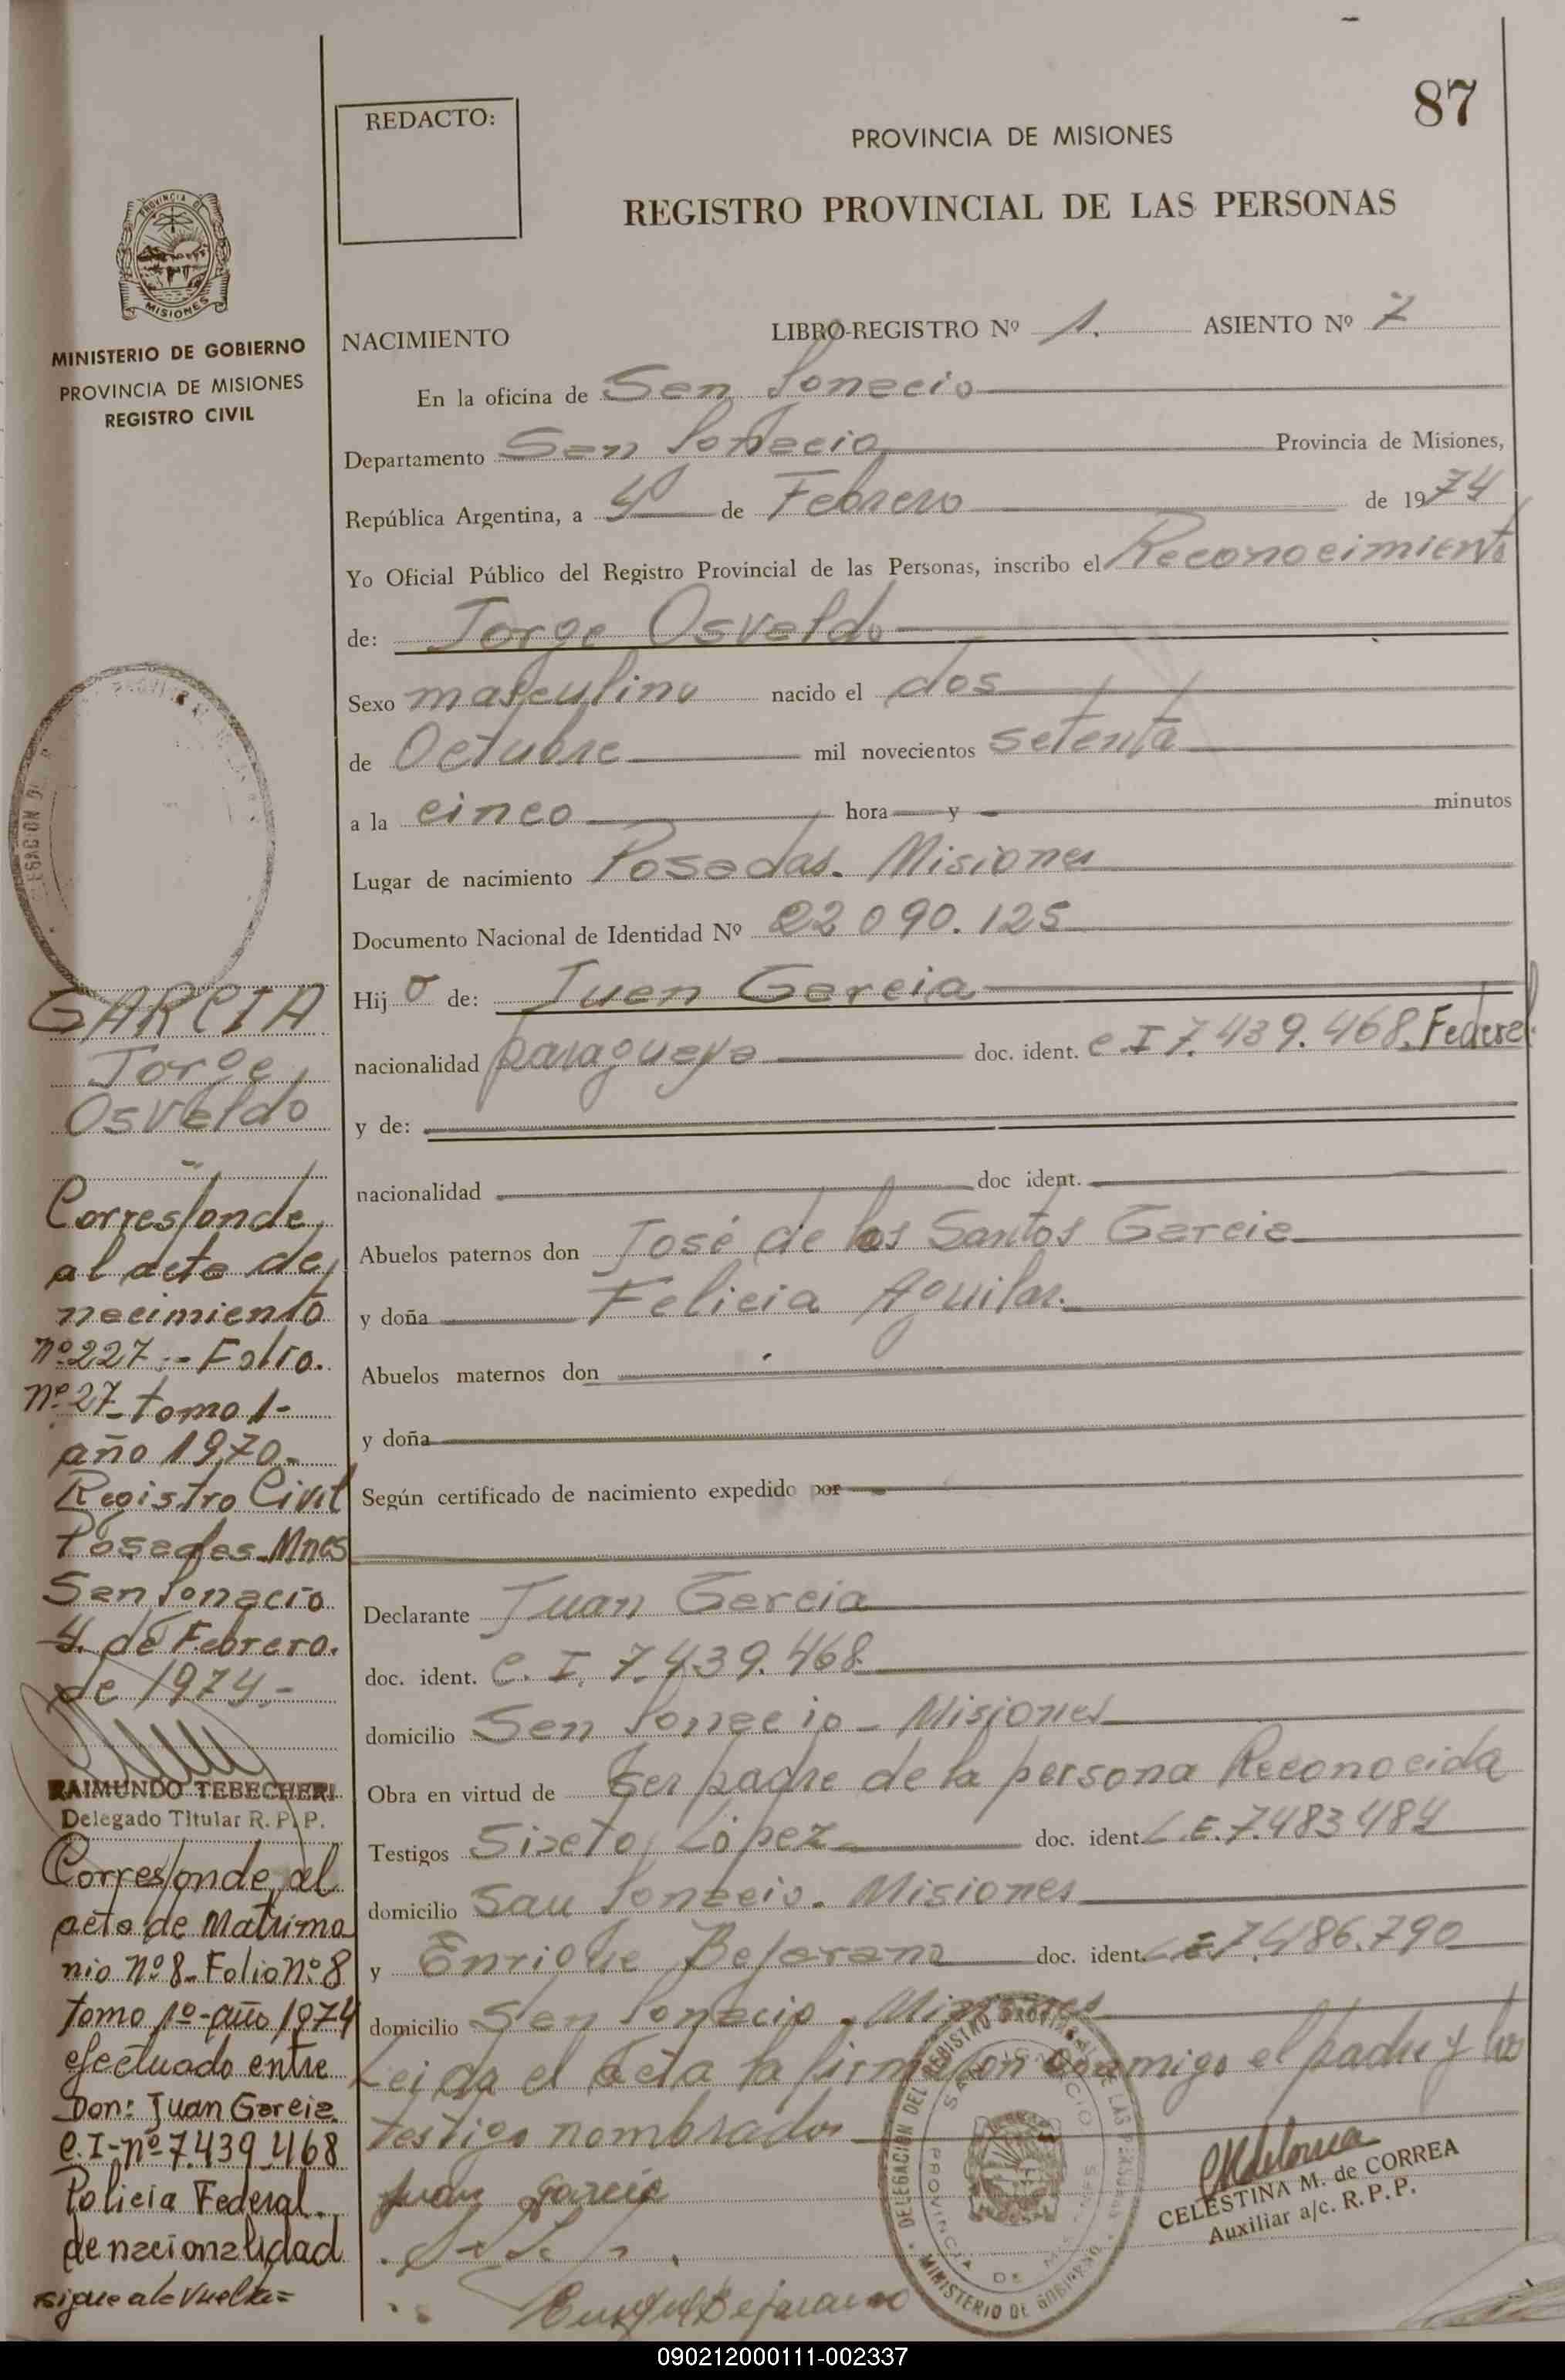 87
REDACTO:
PROVINCIA DE MISIONES
REGISTRO PROVINCIAL DE LAS PERSONAS
PROVINCIA DE
MISIONES
MINISTERIO DE GOBIERNO
PROVINCIA DE MISIONES
REGISTRO CIVIL
NACIMIENTO LIBRO-REGISTRO Nº 1. ASIENTO Nº 7
En la oficina de San Ignacio
Departamento San Ignacio Provincia de Misiones,
República Argentina, a 4º de Febrero de 1974
Yo Oficial Público del Registro Provincial de las Personas, inscribo el Reconocimiento
de: Jorge Osvaldo
Sexo masculino nacido el dos
de Octubre mil novecientos setenta
a la cinco hora y minutos
Lugar de nacimiento Posadas. Misiones
Documento Nacional de Identidad Nº 22 090.125
Hijo de: Juan Garcia
nacionalidad paraguaya doc. ident. C.I 7.439.468. Federal
y de:
nacionalidad doc ident.
Abuelos paternos don José de los Santos Garcia
y doña Felicia Aguilar.
Abuelos maternos don
y doña
Según certificado de nacimiento expedido por
Declarante Juan Garcia
doc. ident. C. I. 7.439.468
domicilio San Ignacio - Misiones
Obra en virtud de Ser padre de la persona Reconocida
Testigos Sixto López doc. ident. L.E. 7.483484
domicilio San Ignacio. Misiones
y Enrique Bejarano doc. ident. L.E. 7.486.790
domicilio San Ignacio. Misiones
Leida el acta la firman conmigo el padre y los
testigo nombrados
Juan Garcia
Enrique Bejarano
CELESTINA M. de CORREA
Auxiliar a/c. R. P. P.
DELEGACION DEL REGISTRO PROVINCIAL DE LAS PERSONAS
SAN IGNACIO
PROVINCIA DE MISIONES
MINISTERIO DE GOBIERNO
GARCIA
Jorge
Osvaldo
Corresponde
al acta de
nacimiento
nº 227 -- Folio.
nº 27 - tomo 1-
año 1970.-
Registro Civil
Posadas. Mnes
San Ignacio
4. de Febrero.
de 1974.-
RAIMUNDO TEBECHERI
Delegado Titular R. P. P.
Corresponde al
acta de Matrimo
nio Nº 8. Folio nº 8
tomo 1º - año 1974
efectuado entre
Don: Juan Garcia
C.I-nº 7.439.468
Policia Federal.
de nacionalidad
sigue a la vuelta=
090212000111-002337